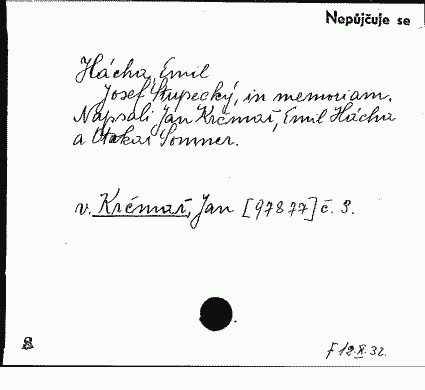 Nepůjčuje se
Hácha, Emil
Josef Stupecký, in memoriam.
Napsali Jan Krčmař, Emil Hácha
a Otakar Sommer.
v. Krčmař, Jan [97877] č. 3.
F 12.X.32.